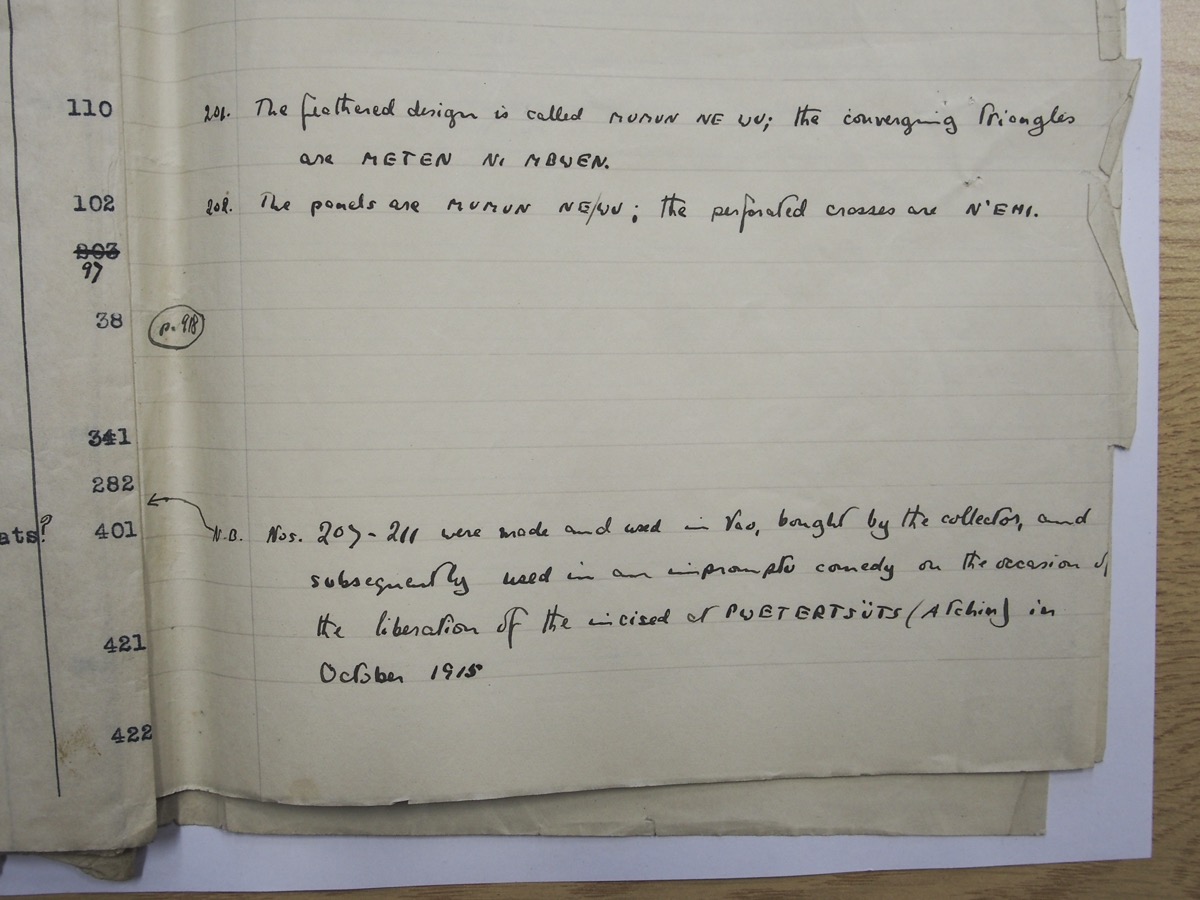 110 201. The feathered design is called MUMUN NE WU; the converging triangles
are METEN NI MBWEN.
102 202. The panels are MUMUN NE/WU; the perforated crosses are N'EMI.
203
97
38 p. 918
341
282
ats? 401 N.B. Nos. 207-211 were made and used in Vao, bought by the collector, and
subsequently used in an impromptu comedy on the occasion of
the liberation of the incised at PWETERTSÜTS (Atchin) in
421
October 1915
422